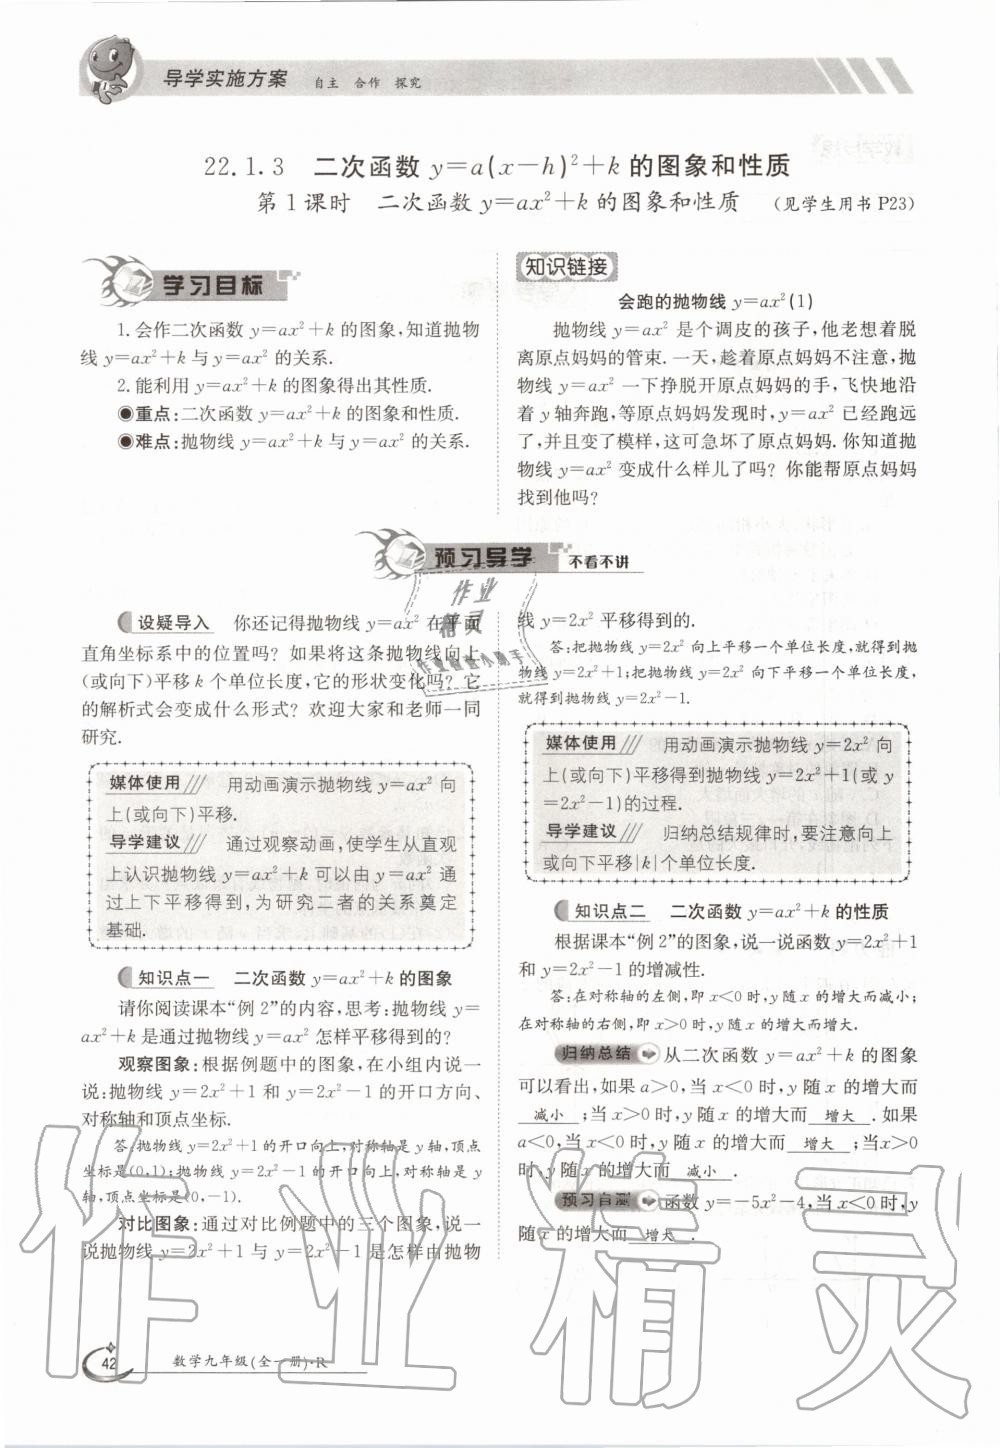 导学实施方案 自主 合作 探究
22.1.3 二次函数 y=a(x-h)²+k 的图象和性质
第1课时 二次函数 y=ax²+k 的图象和性质 (见学生用书 P23)
学习目标
1. 会作二次函数 y=ax²+k 的图象,知道抛物
线 y=ax²+k 与 y=ax² 的关系.
2. 能利用 y=ax²+k 的图象得出其性质.
●重点:二次函数 y=ax²+k 的图象和性质.
●难点:抛物线 y=ax²+k 与 y=ax² 的关系.
知识链接
会跑的抛物线 y=ax²(1)
抛物线 y=ax² 是个调皮的孩子,他老想着脱
离原点妈妈的管束. 一天,趁着原点妈妈不注意,抛
物线 y=ax² 一下挣脱开原点妈妈的手,飞快地沿
着 y 轴奔跑,等原点妈妈发现时,y=ax² 已经跑远
了,并且变了模样,这可急坏了原点妈妈. 你知道抛
物线 y=ax² 变成什么样儿了吗? 你能帮原点妈妈
找到他吗?
预习导学 不看不讲
设疑导入 你还记得抛物线 y=ax² 在平面
直角坐标系中的位置吗? 如果将这条抛物线向上
(或向下)平移 k 个单位长度,它的形状变化吗? 它
的解析式会变成什么形式? 欢迎大家和老师一同
研究.
媒体使用 用动画演示抛物线 y=ax² 向
上(或向下)平移.
导学建议 通过观察动画,使学生从直观
上认识抛物线 y=ax²+k 可以由 y=ax² 通
过上下平移得到,为研究二者的关系奠定
基础.
知识点一 二次函数 y=ax²+k 的图象
请你阅读课本“例 2”的内容,思考:抛物线 y=
ax²+k 是通过抛物线 y=ax² 怎样平移得到的?
观察图象:根据例题中的图象,在小组内说一
说:抛物线 y=2x²+1 和 y=2x²-1 的开口方向、
对称轴和顶点坐标.
答:抛物线 y=2x²+1 的开口向上,对称轴是 y 轴,顶点
坐标是(0,1);抛物线 y=2x²-1 的开口向上,对称轴是 y
轴,顶点坐标是(0,-1).
对比图象:通过对比例题中的三个图象,说一
说抛物线 y=2x²+1 与 y=2x²-1 是怎样由抛物
线 y=2x² 平移得到的.
答:把抛物线 y=2x² 向上平移一个单位长度,就得到抛
物线 y=2x²+1;把抛物线 y=2x² 向下平移一个单位长度,
就得到抛物线 y=2x²-1.
媒体使用 用动画演示抛物线 y=2x² 向
上(或向下)平移得到抛物线 y=2x²+1(或 y
=2x²-1)的过程.
导学建议 归纳总结规律时,要注意向上
或向下平移|k|个单位长度.
知识点二 二次函数 y=ax²+k 的性质
根据课本“例 2”的图象,说一说函数 y=2x²+1
和 y=2x²-1 的增减性.
答:在对称轴的左侧,即 x<0 时,y 随 x 的增大而减小;
在对称轴的右侧,即 x>0 时,y 随 x 的增大而增大.
归纳总结 从二次函数 y=ax²+k 的图象
可以看出,如果 a>0,当 x<0 时,y 随 x 的增大而
减小 ;当 x>0 时,y 随 x 的增大而 增大 . 如果
a<0,当 x<0 时,y 随 x 的增大而 增大 ;当 x>0
时,y 随 x 的增大而 减小 .
预习自测 函数 y=-5x²-4,当 x<0 时,y
随 x 的增大而 增大 .
42 数学九年级(全一册)·R
作业精灵